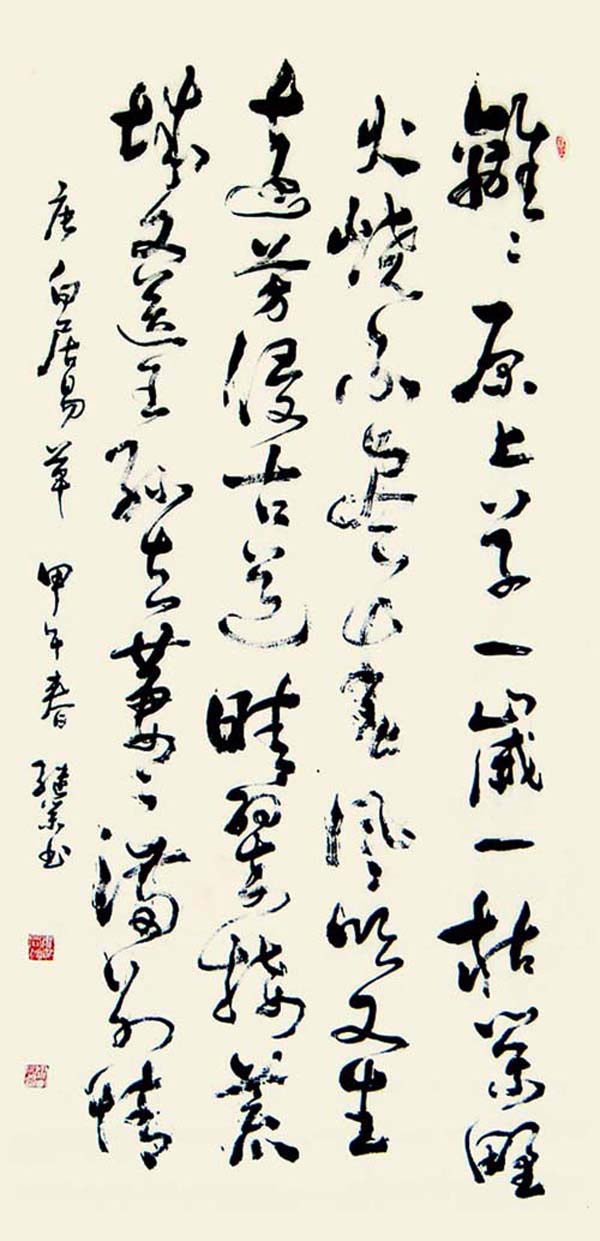 離〻原上草一歲一枯榮野
火燒不盡春風吹又生
遠芳侵古道晴翠接荒
城又送王孫去萋〻滿別情
唐白居易草 甲午春 继業书